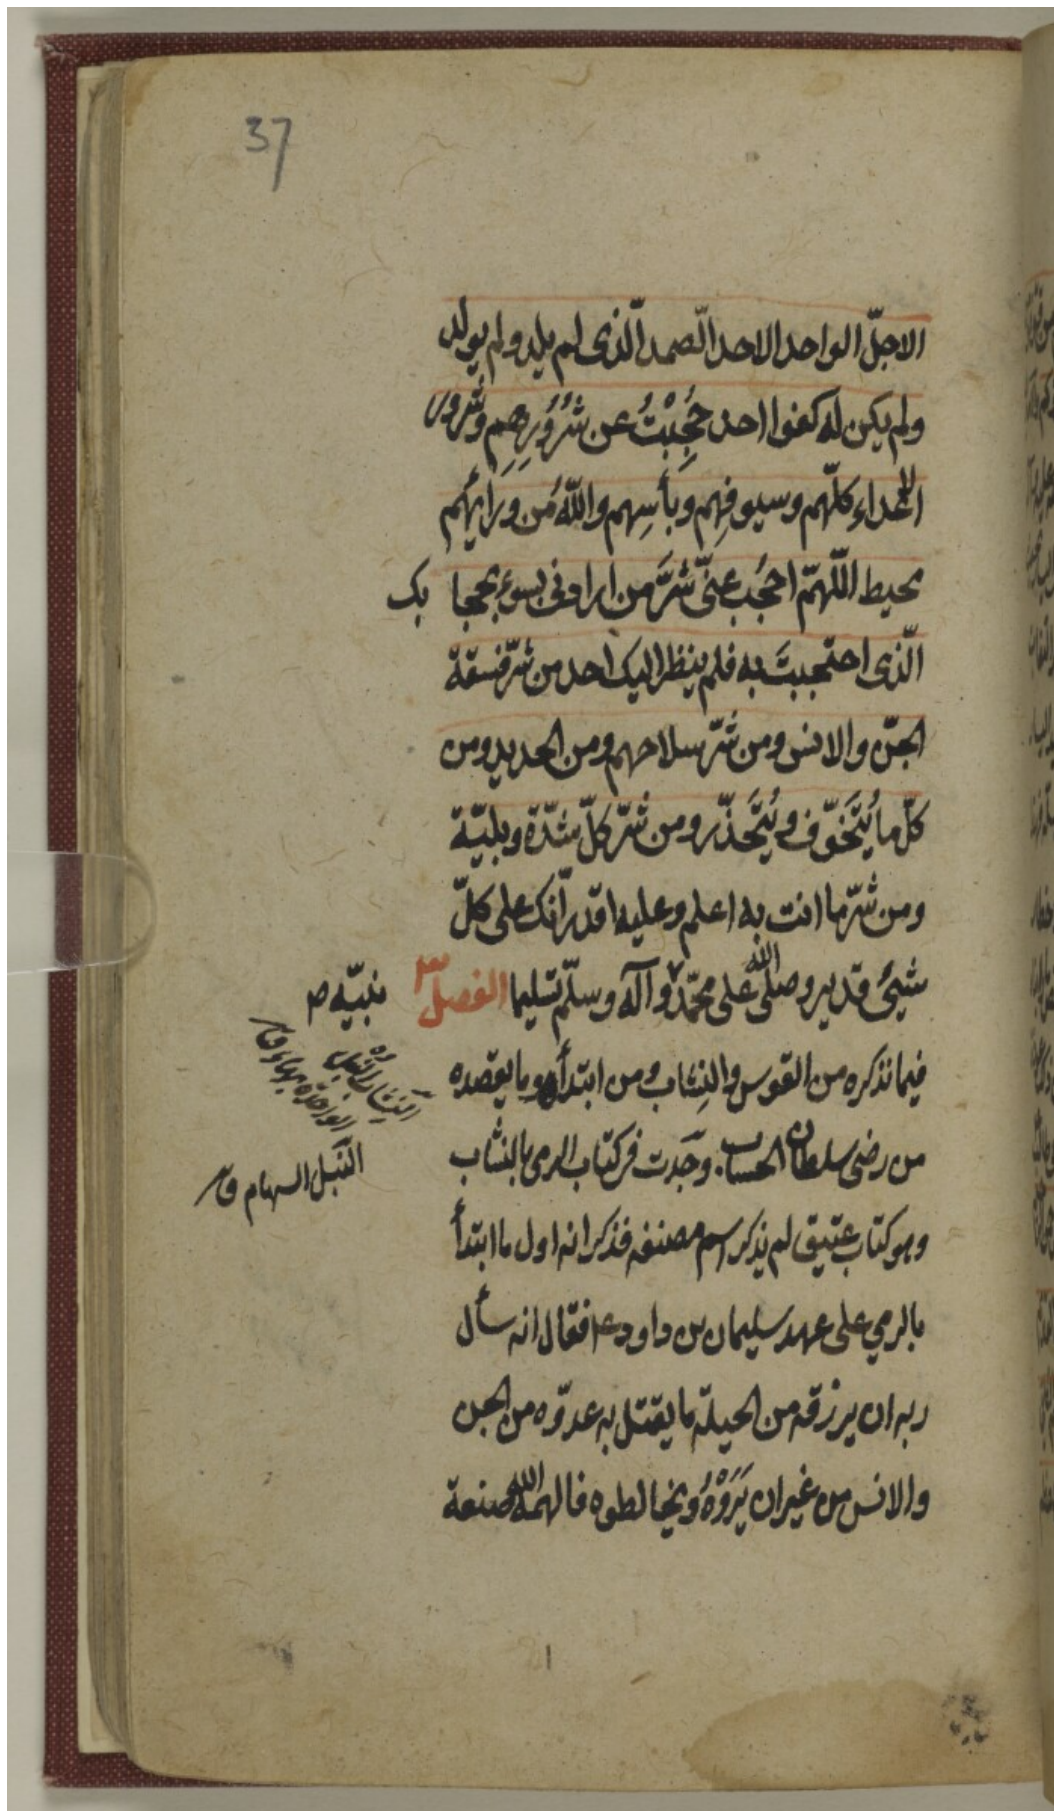 37
الاجلّ الواحد الاحد الصّمد الّذى لم يلد ولم يولد
ولم يكن له كفوا احد حُجِبْتُ عن شُرُوُرِهِمِ وشرور
الاعداء كلّهم وسيوفِهِم وبأسِهِم واللّه من ورَائِهُم
محيط اللّهمّ احجُب عنّى شرَّ من ارادنى بسوء بحجابك
الّذى احتجبتَ به فلم ينظر اليك احد من شرّ فسقة
الجنّ والانس ومن شرّ سلاحهم ومن الحديد ومن
كلّ ما يُتَخوّف ويُتَحذّر ومن شرّ كلّ شدّة وبليّة
ومن شرّ ما انت به اعلم وعليه اقدر انّك على كلّ
شيئ قدير وصلّى اللّه على محمّد نبيّه وآله وسلّم تسليما الفصل ٣
فيما نذكره من القوس والنِشاب ومن ابتدأه وما يقصده
من رضى سلطان الحساب. وجَدت فى كتاب الرمى بالنشاب
وهو كتاب عتيق لم يذكر اسم مصنفه فذكر انه اول ما ابتدأ
بالرمي على عهد سليمان بن داود ع م فقال انه سأل
ربه ان يرزقه من الحيلة ما يقتل به عدوّه من الجن
والانس من غير ان يَرَوْهُ ويخالطوه فالهمه اللّه صنعة
النشاب النبل
الواحدة بهاء ق
النَبل السهام ق